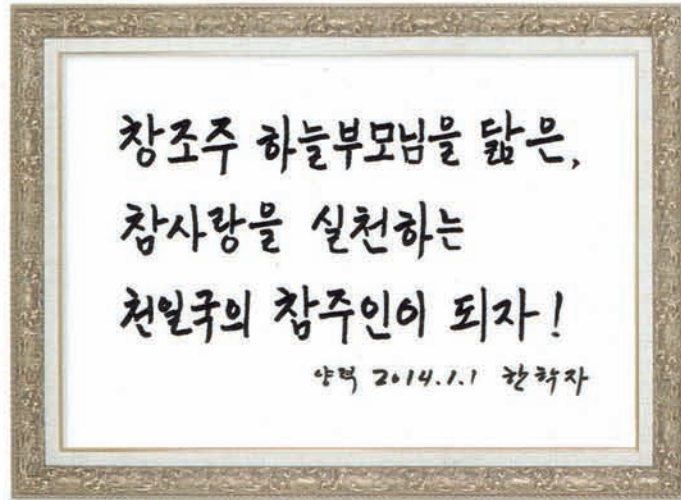 창조주 하늘부모님을 닮은,
참사랑을 실천하는
천일국의 참주인이 되자!
양력 2014.1.1 한학자